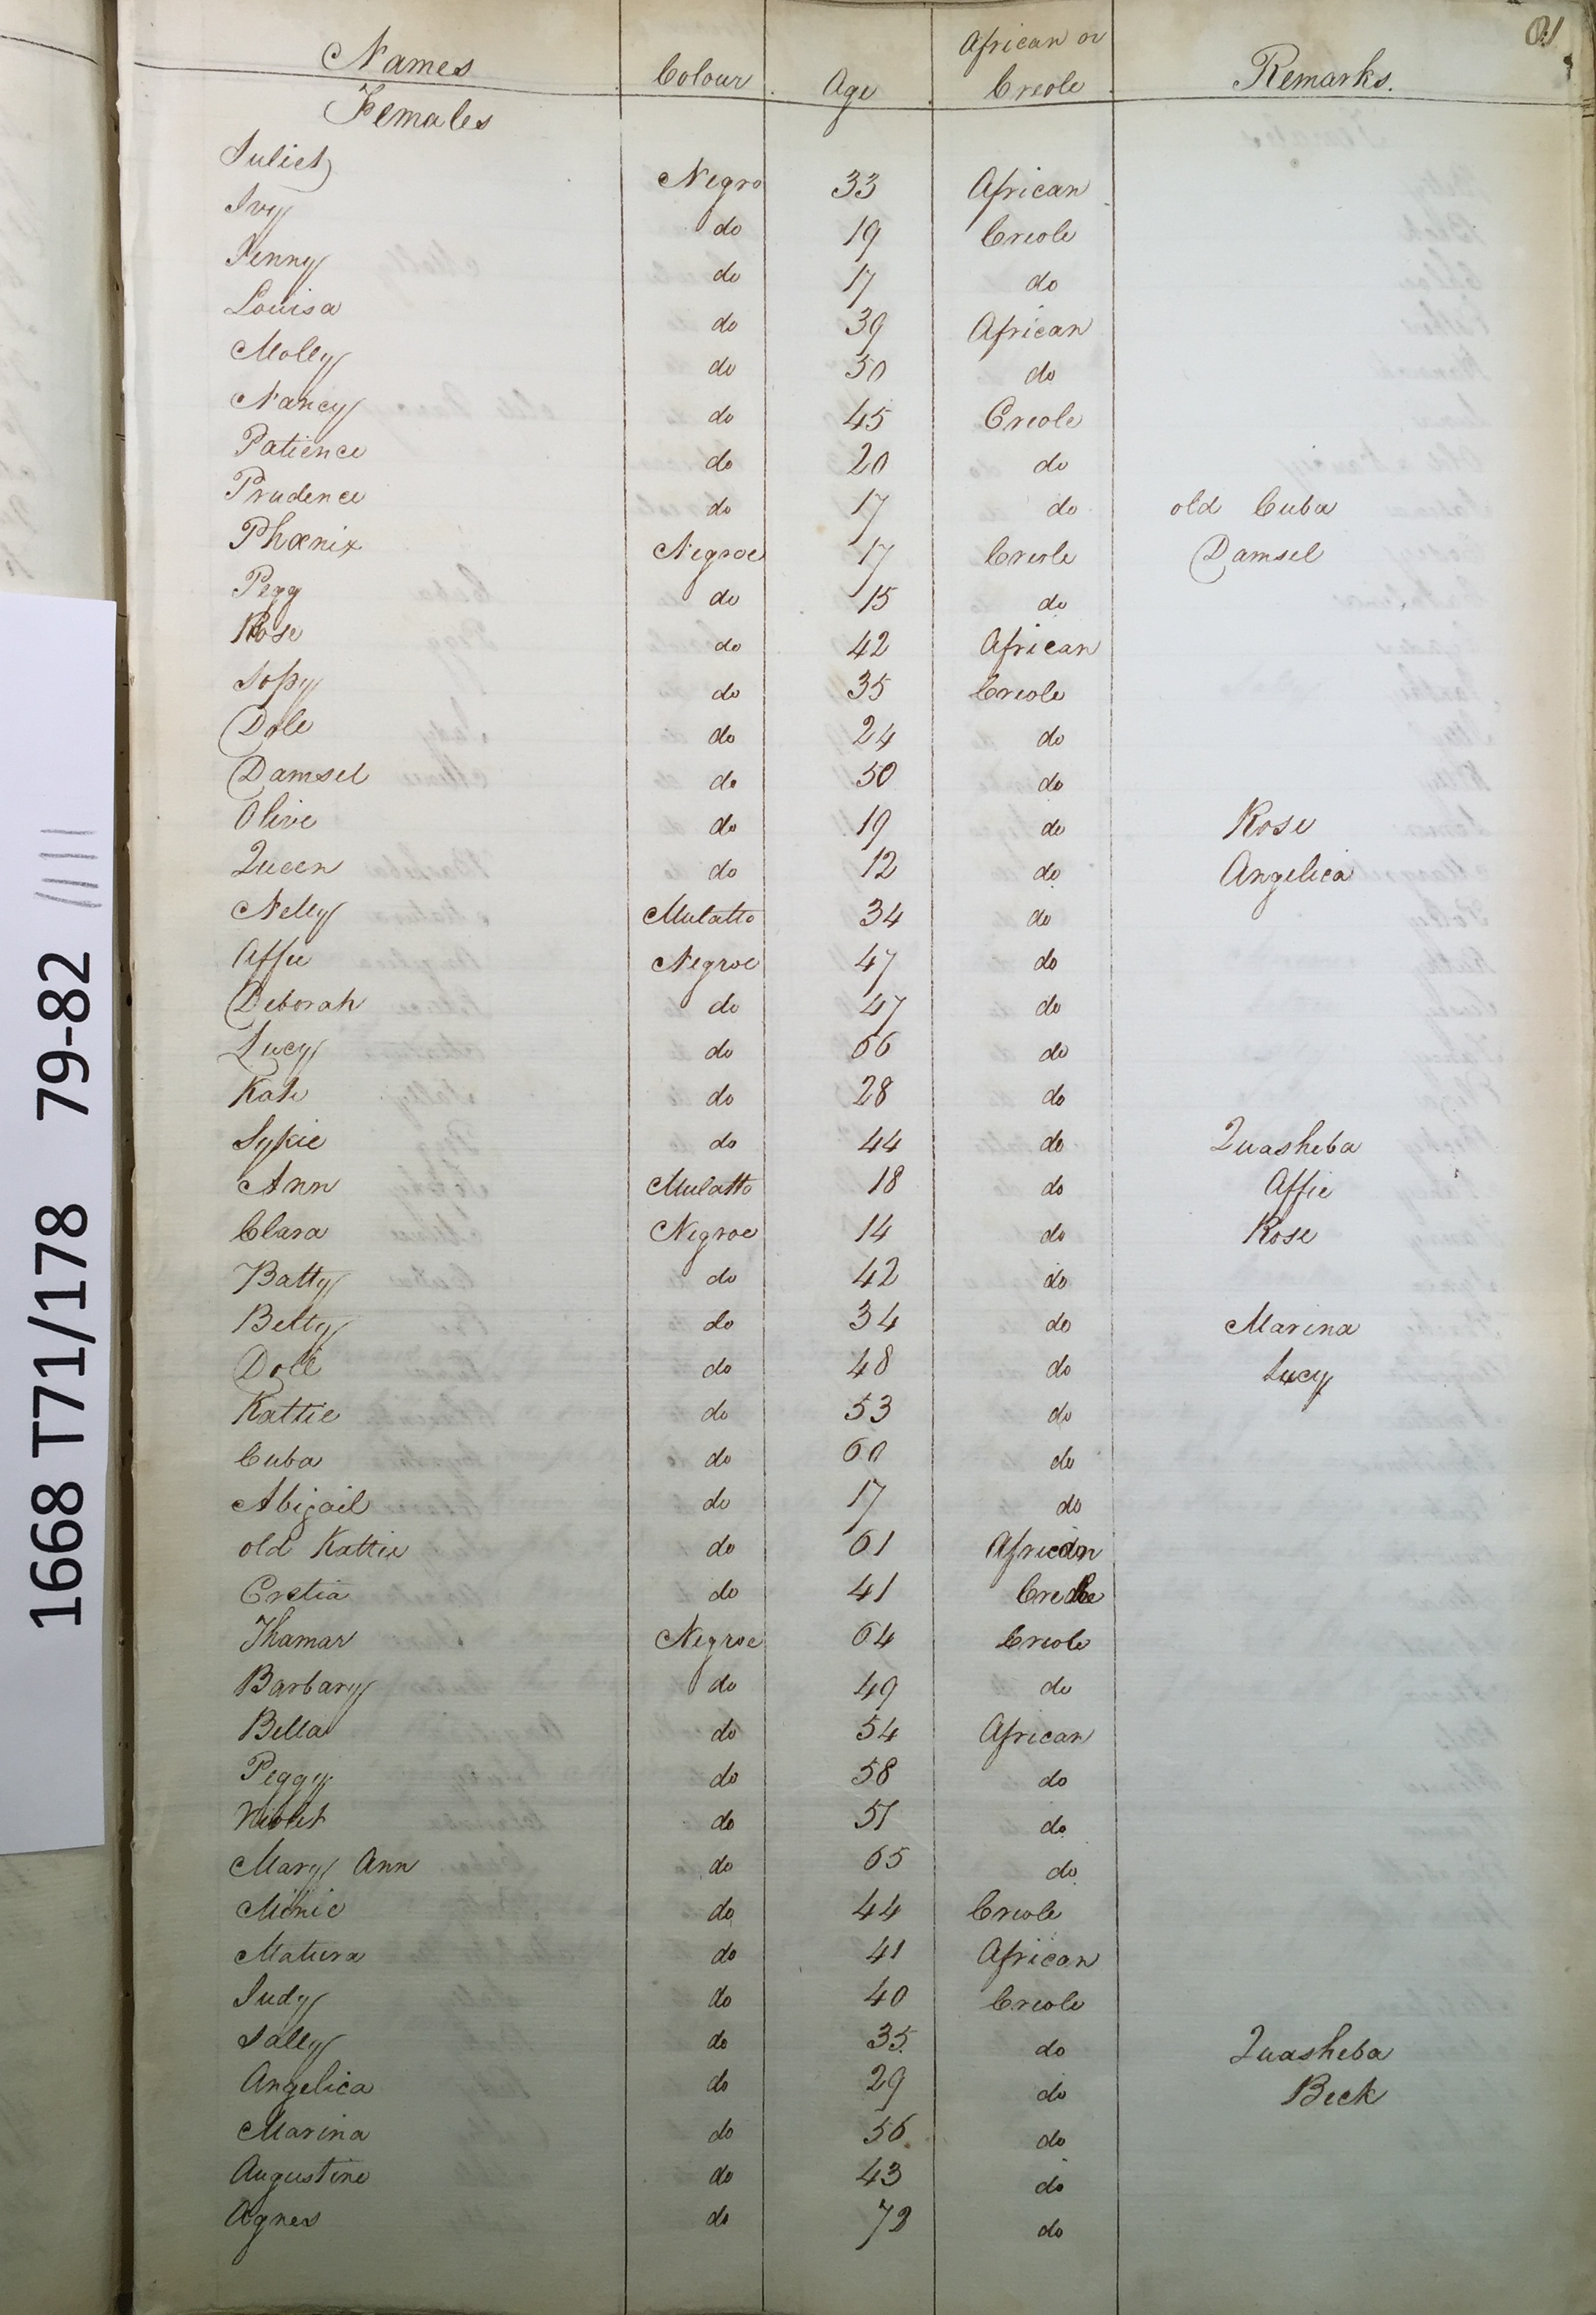 81
Names Colour Age African or Creole Remarks.
Females
Juliet Negro 33 African
Ivy do 19 Creole
Jenny do 17 do
Louisa do 39 African
Molly do 30 do
Nancy do 45 Creole
Patience do 20 do
Prudence do 17 do old Cuba
Phœnix Negroe 17 Creole Damsel
Pegg do 15 do
Rose do 42 African
Sopy do 35 Creole
Dole do 24 do
Damsel do 50 do
Olive do 19 do Rose
Queen do 12 do Angelica
Nelly Mulatto 34 do
Affie Negroe 47 do
Deborah do 47 do
Lucy do 66 do
Kate do 28 do
Sykie do 44 do Quasheba
Ann Mulatto 18 do Affie
Clara Negroe 14 do Rose
Batty do 42 do
Betty do 34 do Marina
Doll do 48 do Lucy
Kattie do 53 do
Cuba do 60 do
Abigail do 17 do
old Kattie do 61 African
Cretia do 41 Creole
Thamar Negroe 64 Creole
Barbary do 49 do
Bella do 54 African
Peggy do 58 do
Violet do 51 do
Mary Ann do 65 do
Mimie do 44 Creole
Matura do 41 African
Judy do 40 Creole
Sally do 35 do Quasheba
Angelica do 29 do Beck
Marina do 56 do
Augustine do 43 do
Agnes do 73 do
1668 T71/178 79-82